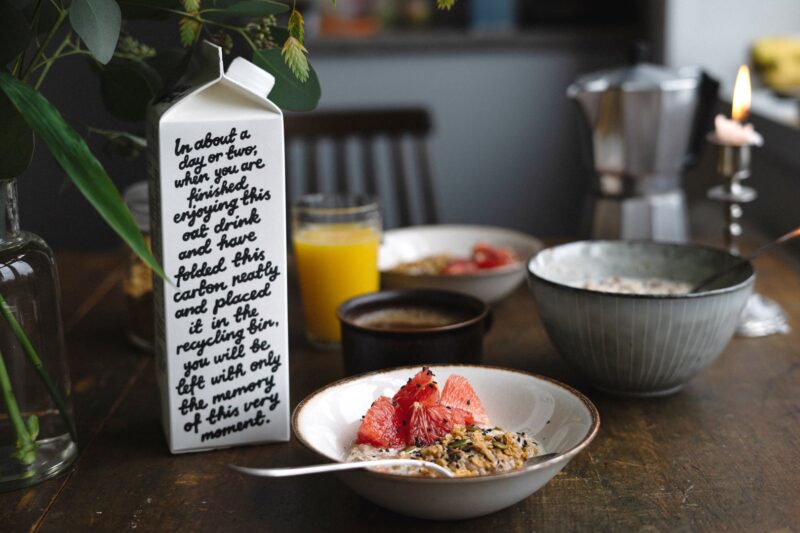 In about a
day or two,
when you are
finished
enjoying this
oat drink
and have
folded this
carton neatly
and placed
it in the
recycling bin,
you will be
left with only
the memory
of this very
moment.